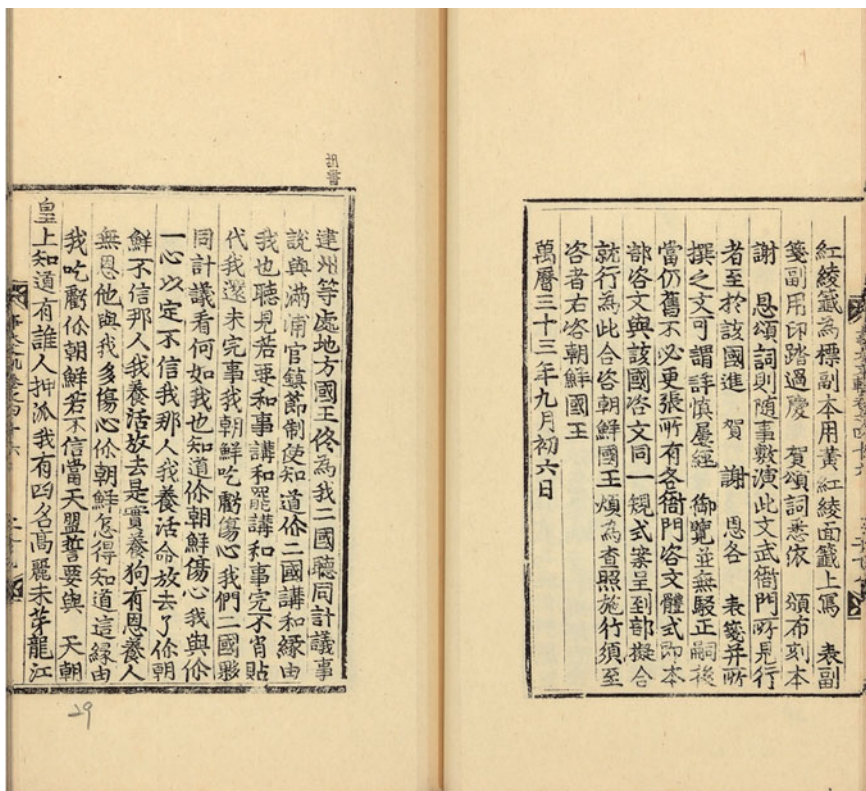 紅綾籤為標副本用黃紅綾面籤上寫 表副
箋副用印踏過慶 賀頌詞悉依 頒布刻本
謝 恩頌詞則随事敷演此文武衙門所見行
者至於該國進 賀 謝 恩各 表箋并所
撰之文可謂詳慎屢經 御覽並無駁正嗣後
當仍舊不必更張所有各衙門咨文體式即本
部咨文與該國咨文同一規式案呈到部擬合
就行為此合咨朝鮮國王 煩為查照施行須至
咨者右咨朝鮮國王
萬曆三十三年九月初六日
胡書
建州等處地方國王佟為我二國聽同計議事
說與滿浦官鎮節制使知道你二國講和緣由
我也聽見若要和事講和罷講和事完不肯貼
代我還未完事我朝鮮吃虧傷心我們二國夥
同計議看何如我也知道你朝鮮傷心我與你
一心以定不信我那人我養活命放去了你朝
鮮不信那人我養活放去是實養狗有恩養人
無恩他與我多傷心你朝鮮怎得知道這緣由
我吃虧你朝鮮若不信當天盟誓要與 天朝
皇上知道有誰人押派我有四名高麗未芽龍江
29